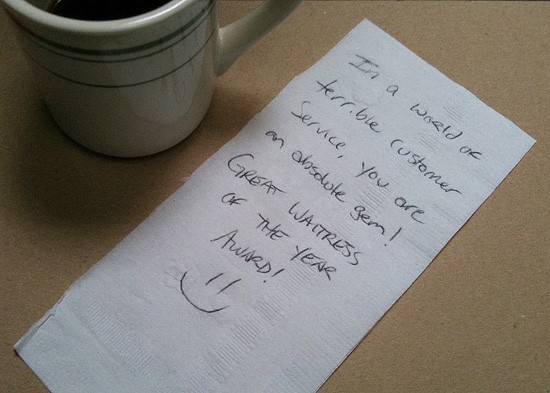 In a world of
terrible customer
service, you are
an absolute gem!
GREAT WAITRESS
OF THE YEAR
AWARD!